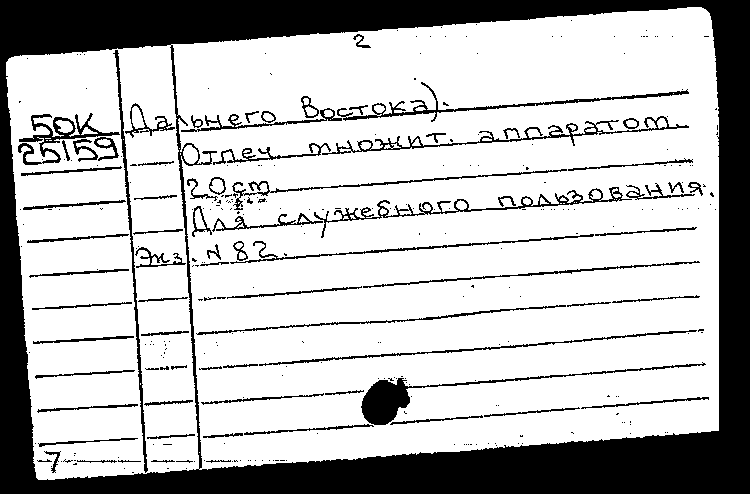 2
50К Дальнего Востока).
25159 Отпеч. множит. аппаратом.
20 ст.
Для служебного пользования.
Экз. N 82.
7